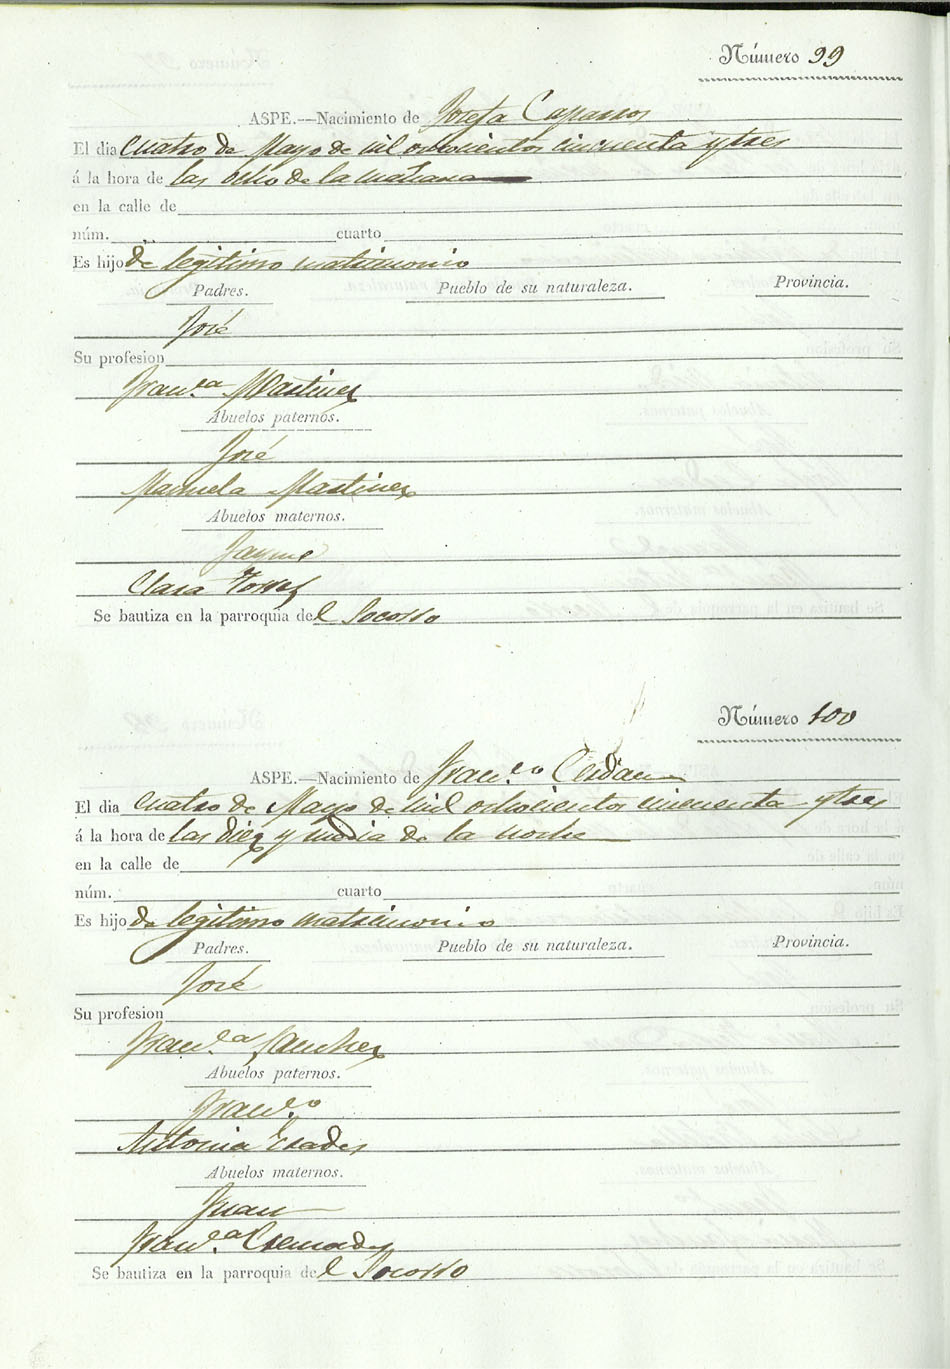 Número 99
ASPE.—Nacimiento de Josefa Caparros
El dia cuatro de Mayo de mil ochocientos cincuenta y tres
á la hora de las ocho de la mañana
en la calle de
núm. cuarto
Es hijo de legitimo matrimonio
Padres. Pueblo de su naturaleza. Provincia.
José
Su profesion
Fran.ca Martinez
Abuelos paternos.
José
Manuela Martinez
Abuelos maternos.
Jayme
Clara Torres
Se bautiza en la parroquia del Socorro
Número 100
ASPE.—Nacimiento de Fran.co Cerdan
El dia cuatro de Mayo de mil ochocientos cincuenta y tres
á la hora de las diez y media de la noche
en la calle de
núm. cuarto
Es hijo de legitimo matrimonio
Padres. Pueblo de su naturaleza. Provincia.
José
Su profesion
Fran.ca Sanchez
Abuelos paternos.
Fran.co
Antonia
Abuelos maternos.
Juan
Fran.ca Cremades
Se bautiza en la parroquia del Socorro